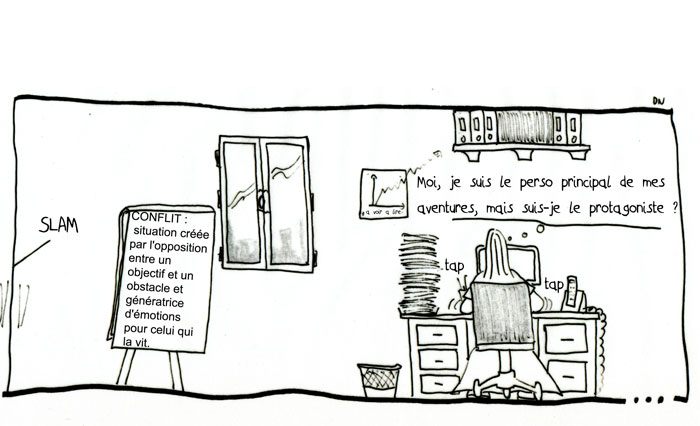 DN
Moi, je suis le perso principal de mes
aventures, mais suis-je le protagoniste ?
SLAM
CONFLIT :
situation créée
par l'opposition
entre un
objectif et un
obstacle et
génératrice
d'émotions
pour celui qui
la vit.
tap
tap